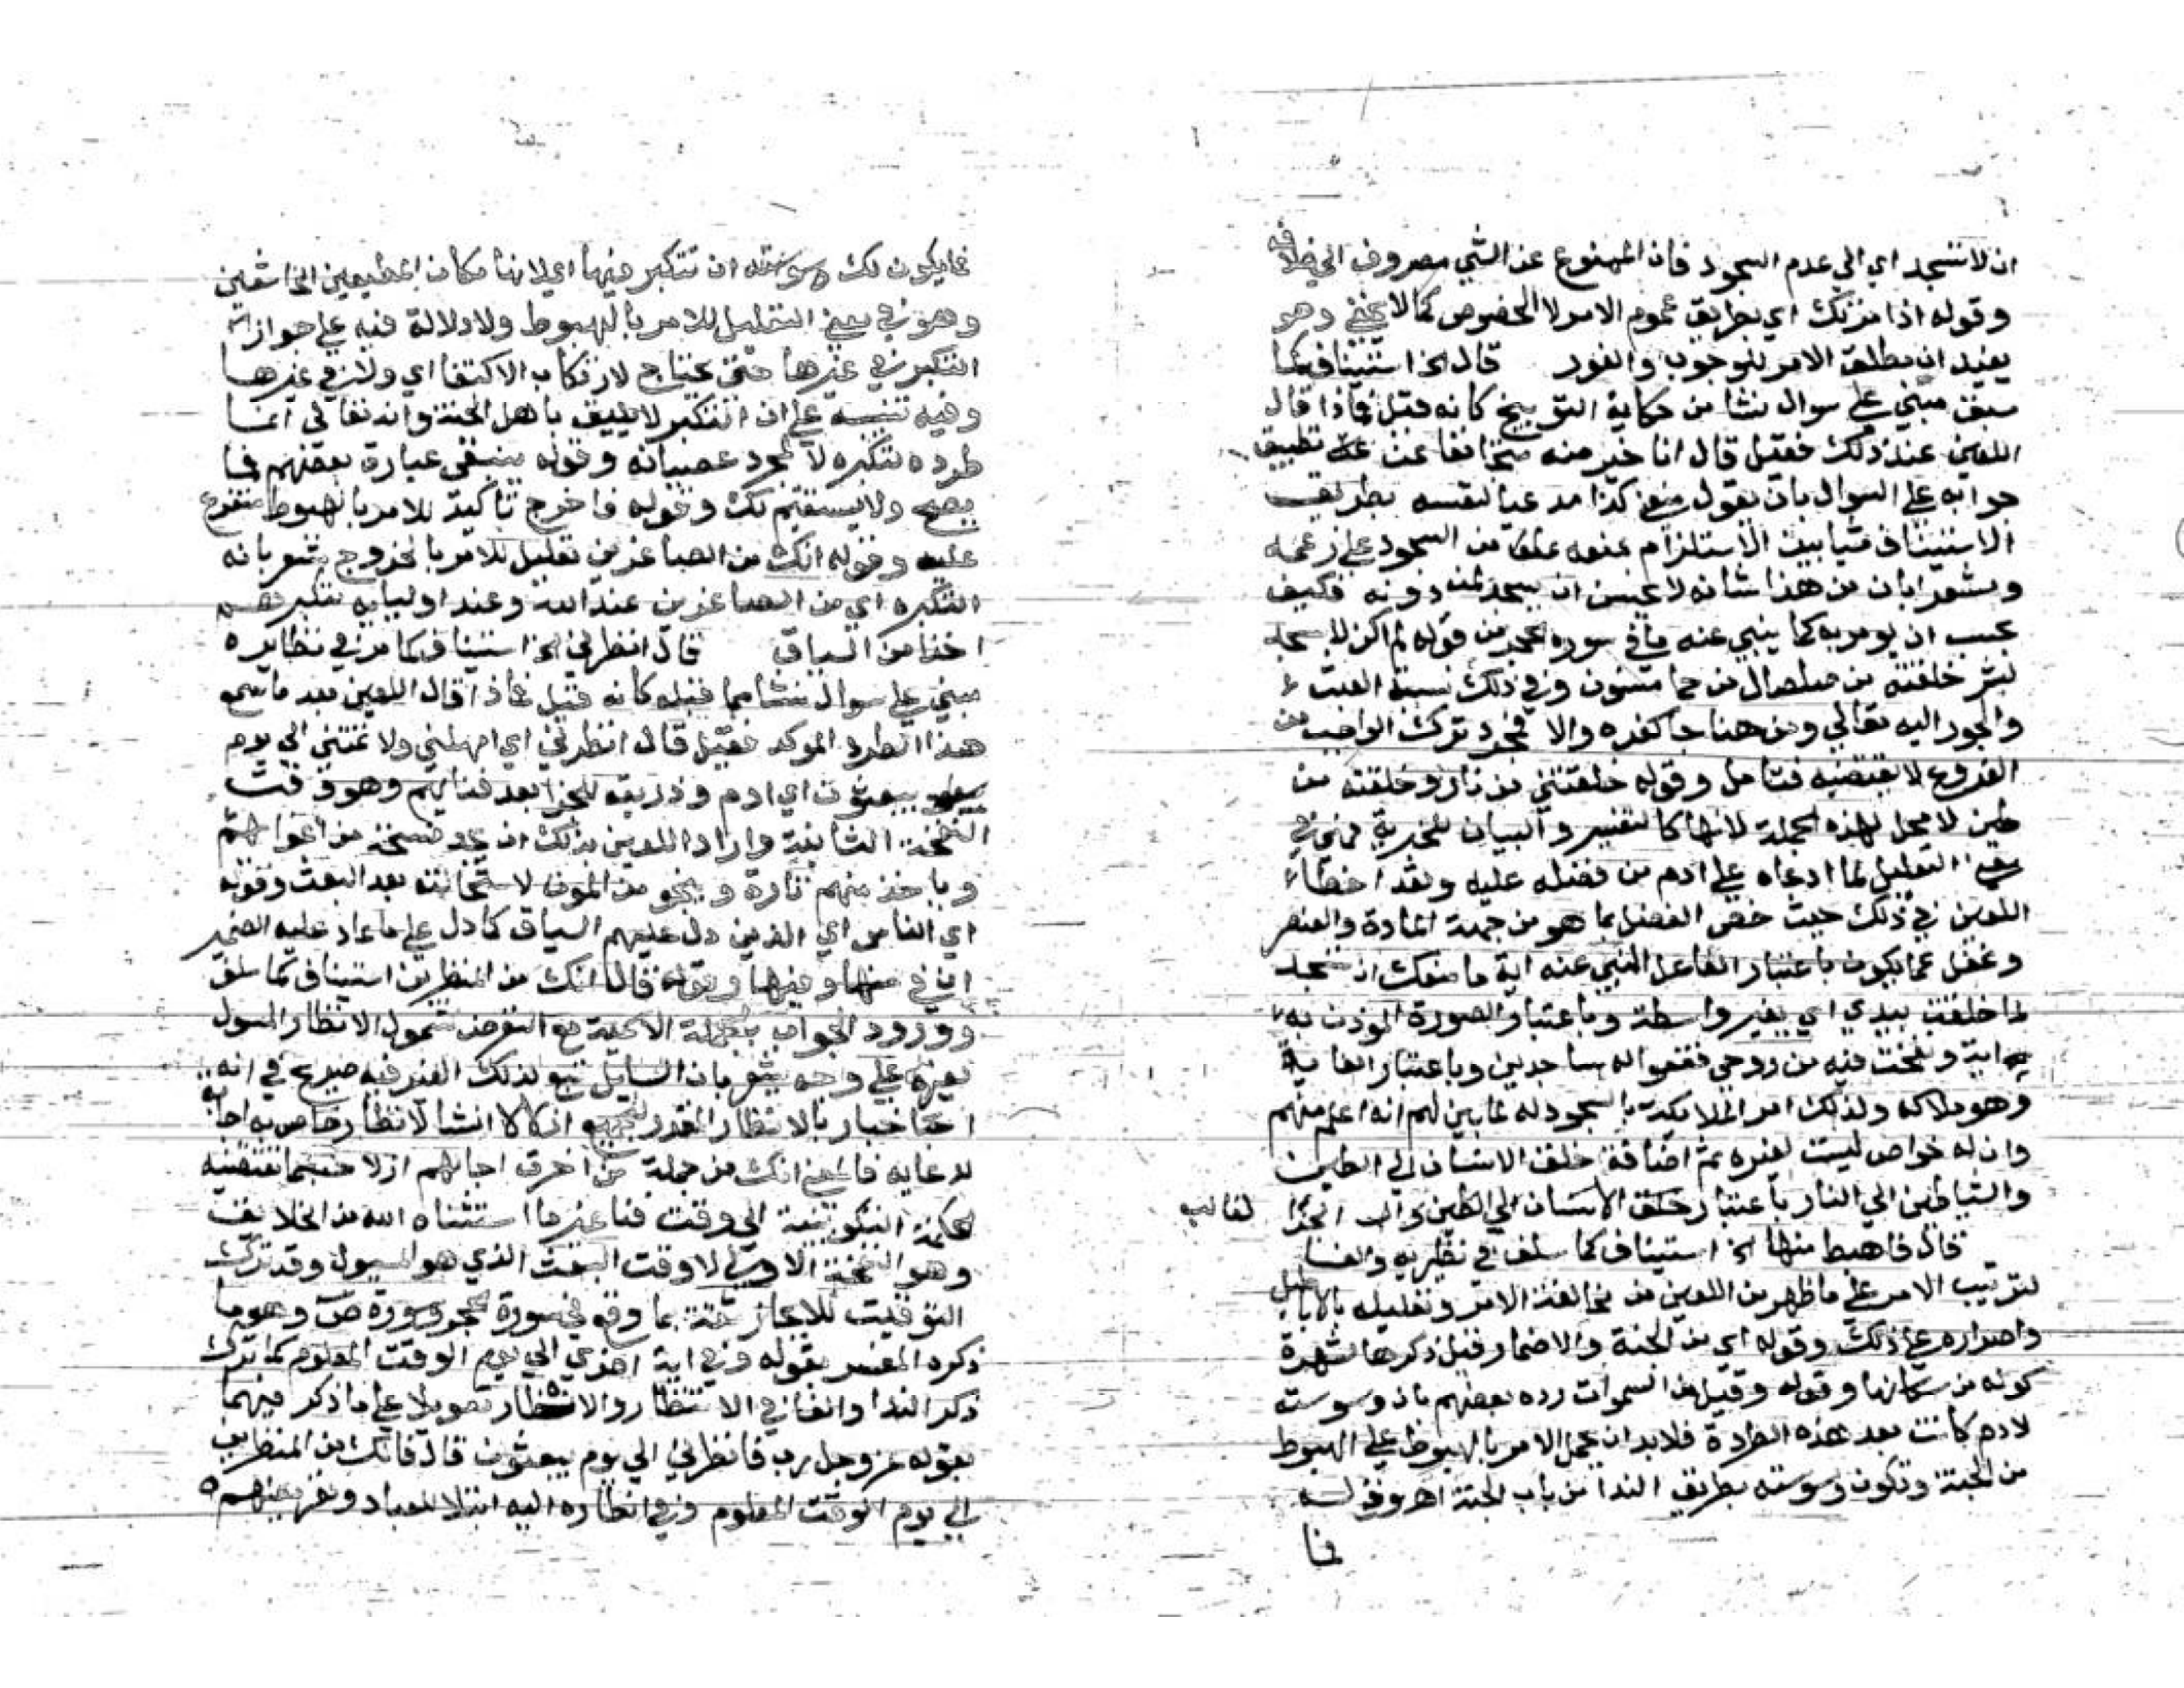 ان لا تسجد اي الي عدم السجود فان الممنوع عن الشي مصروف الي خلافه
وقوله اذ امرتك اي بطريق عموم الامر لا الخصوص كما لا يخفي وهو
يفيد ان مطلق الامر للوجوب والفور قال الخ استيناف كما
سبق مبني علي سوال نشا من حكاية التوبيخ كانه قيل فماذا قال
اللعين عند ذلك فقيل قال انا خير منه متجانفا عن تطبيق
جوابه علي السوال بان يقول منعني كذا مدعيا لنفسه بطريق
الاستيناف شيا بين الاستلزام لمنعه من السجود علي زعمه
ومشعرا بان من هذا شانه لا يحسن ان يسجد لمن دونه فكيف
يحسن ان يومر به كما ينبي عنه ما في سورة الحجر من قوله لم اكن لاسجد
لبشر خلقته من صلصال من حما مسنون وفي ذلك نسبة العبث
والجور اليه تعالي ومن هنا جا كفره والا فمجرد ترك الواجب من
الفروع لا يقتضيه فتامل وقوله خلقتني من نار وخلقته من
طين لا محل لهذه الجملة لانها كالتفسير والبيان للخيرية فهي في
معني التعليل لما ادعاه علي ادم من فضله عليه ولقد اخطا
اللعين في ذلك حيث خص الفضل بما هو من جهة المادة والعنصر
وغفل عما يكون باعتبار الفاعل المنبي عنه اية ما منعك ان تسجد
لما خلقت بيدي اي بغير واسطة وباعتبار الصورة الموذن به
اية ونفخت فيه من روحي فقعوا له ساجدين وباعتبار الغاية
وهو ملاكه ولذلك امر الملايكة بالسجود له لما بين لهم انه اعلم منهم
وان له خواص ليست لغيره ثم اضافة خلق الانسان الي الطين
والشياطين الي النار باعتبار الجز الغالب
قال فاهبط منها الخ استيناف كما سلف في نظيريه والفا
لترتيب الامر علي ما ظهر من اللعين من مخالفة الامر وتعليله بالاباطيل
واصراره علي ذلك وقوله اي من الجنة والاضمار قبل ذكرها لشهرة
كونه من سكانها وقوله وقيل من السموات رده بعضهم بان وسوسته
لادم كانت بعد هذه الطردة فلا بد ان يحمل الامر بالهبوط علي الهبوط
من الجنة وتكون وسوسته بطريق الندا من باب الجنة اهـ وقوله
فما
فما يكون لك ان تتكبر فيها اي لانها مكان المطيعين الخاشعين
وهو في معني التعليل للامر بالهبوط ولا دلالة فيه علي جواز
التكبر في غيرها حتي يحتاج لارتكاب الاكتفا اي ولا في غيرها
وفيه تنبيه علي ان التكبر لا يليق باهل الجنة وانه تعالي انما
طرده لتكبره لا لمجرد عصيانه وقوله ينبغي عبارة بعضهم فما
يصح ولا يستقيم لك وقوله فاخرج تاكيد للامر بالهبوط متفرع
عليه وقوله انك من الصاغرين تعليل للامر بالخروج مشعر بانه
لتكبره اي من الصاغرين عند الله وعند اوليايه
اخذا من السياق قال انظرني الخ استيناف كما مر في نظايره
مبني علي سوال نشا مما قبله كانه قيل فماذا قال اللعين بعد ما سمع
هذا الطرد الموكد فقيل قال انظرني اي امهلني ولا تمتني الي يوم
يبعثون اي ادم وذريته للجزا بعد فنايهم وهو وقت
النفخة الثانية واراد اللعين بذلك ان يجد فسحة من اغوايهم
وياخذ منهم ثاره وينجو من الموت لاستحالته بعد البعث وقوله
اي الناس اي الذين دل عليهم السياق كما دل علي ما عاد عليه الضمير
في منها وفيها وقوله قال انك من المنظرين استيناف كما سلف
وورود الجواب بالجملة الاسمية مع التعرض لشمول الانظار المسول
لغيره علي وجه يشعر بان السايل تبع لذلك الغير فيه صريح في انه
اخبار بالانظار المقدر لهم ازلا لا انشا لانظار خاص به اجابة
لدعايه فالمعني انك من جملة من اخرت اجالهم ازلا حسبما تقتضيه
الحكمة التكوينية الي وقت فنا غير ما استثناه الله من الخلايق
وهو النفخة الاولي لا وقت البعث الذي هو المسول وقد ترك
التوقيت للايجاز ثقة بما وقع في سورة الحجر وسورة ص وهو ما
ذكره المفسر بقوله وفي اية اخري الي يوم الوقت المعلوم كما ترك
ذكر الندا والفا في الاستنظار والانظار تعويلا علي ما ذكر فيهما
بقوله عز وجل رب فانظرني الي يوم يبعثون قال فانك من المنظرين
الي يوم الوقت المعلوم وفي انظاره اليه ابتلا للعباد وتعريضهم